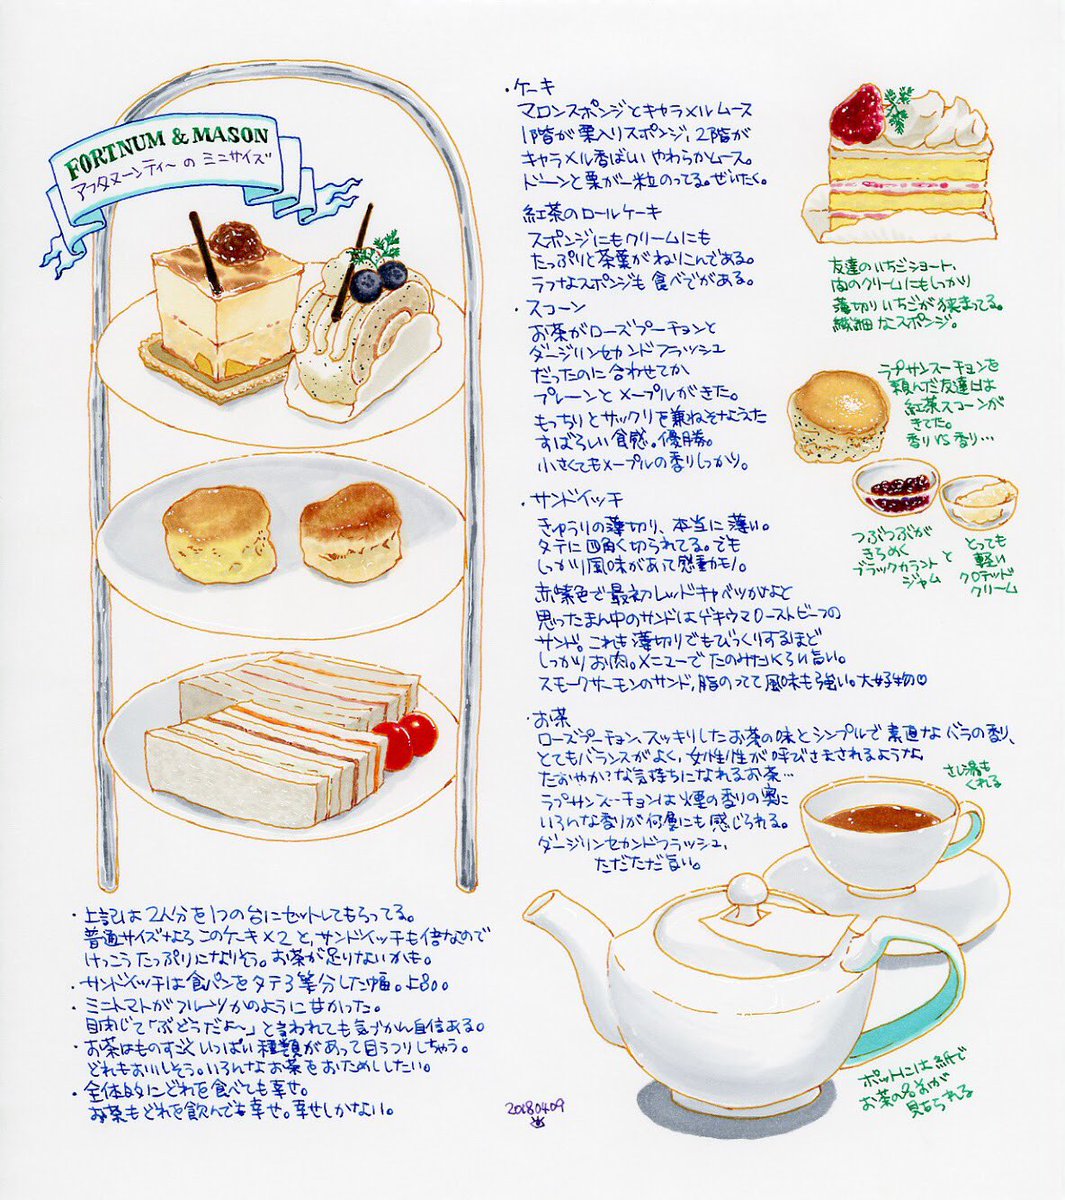 FORTNUM & MASON
アフタヌーンティ〜の ミニサイズ
・ケーキ
マロンスポンジとキャラメルムース
1階が栗入りスポンジ、2階が
キャラメル香ばしい やわらかムース。
ドーンと栗が一粒のってる。ぜいたく。
紅茶のロールケーキ
スポンジにもクリームにも
たっぷりと茶葉がねりこんである。
ラフなスポンジも 食べでがある。
・スコーン
お茶がローズプーチョンと
ダージリンセカンドフラッシュ
だったのに合わせてか
プレーンと メープルがきた。
もっちりとサックリを兼ねそなえた
すばらしい食感。優勝。
小さくてもメープルの香りしっかり。
・サンドイッチ
きゅうりの薄切り、本当に薄い。
タテに四角く切られてる。でも
しっかり風味があって感動モノ。
赤紫色で最初レッドキャベツかなと
思ったまん中のサンドはゲキウマローストビーフの
サンド。これも薄切りでもびっくりするほど
しっかりお肉。メニューでたのみたいくらい旨い。
スモークサーモンのサンド、脂のってて風味も強い。大好物♡
・お茶
ローズプーチョン、スッキリしたお茶の味とシンプルで素直なバラの香り、
とてもバランスがよく、女性性が呼びさまされるような
たおやか?な気持ちになれるお茶…
ラプサンスーチョンは煙の香りの奥に
いろんな香りが何層にも感じられる。
ダージリンセカンドフラッシュ、
ただただ旨い。
友達のいちごショート、
間のクリームにもしっかり
薄切りいちごが挟まってる。
繊細なスポンジ。
ラプサンスーチョンを
頼んだ友達には
紅茶スコーンが
きてた。
香りVS香り…
つぶつぶが
きらめく
ブラックカラント
ジャム
と
とっても
軽い
クロテッド
クリーム
さし湯も
くれる
ポットには紙で
お茶の名前が
見られる
・上記は2人分を1つの台にセットしてもらってる。
普通サイズならこのケーキ×2と、サンドイッチも倍なので
けっこうたっぷりになりそう。お茶が足りないかも。
・サンドイッチは食パンをタテ3等分した幅。上品。
・ミニトマトがフルーツかのように甘かった。
目閉じて「ぶどうだよ〜」と言われても気づかん自信ある。
・お茶はものすごくいっぱい種類があって目うつりしちゃう。
どれもおいしそう。いろんなお茶をおためししたい。
・全体的にどれを食べても幸せ。
お茶もどれを飲んでも幸せ。幸せしかない。
20180409